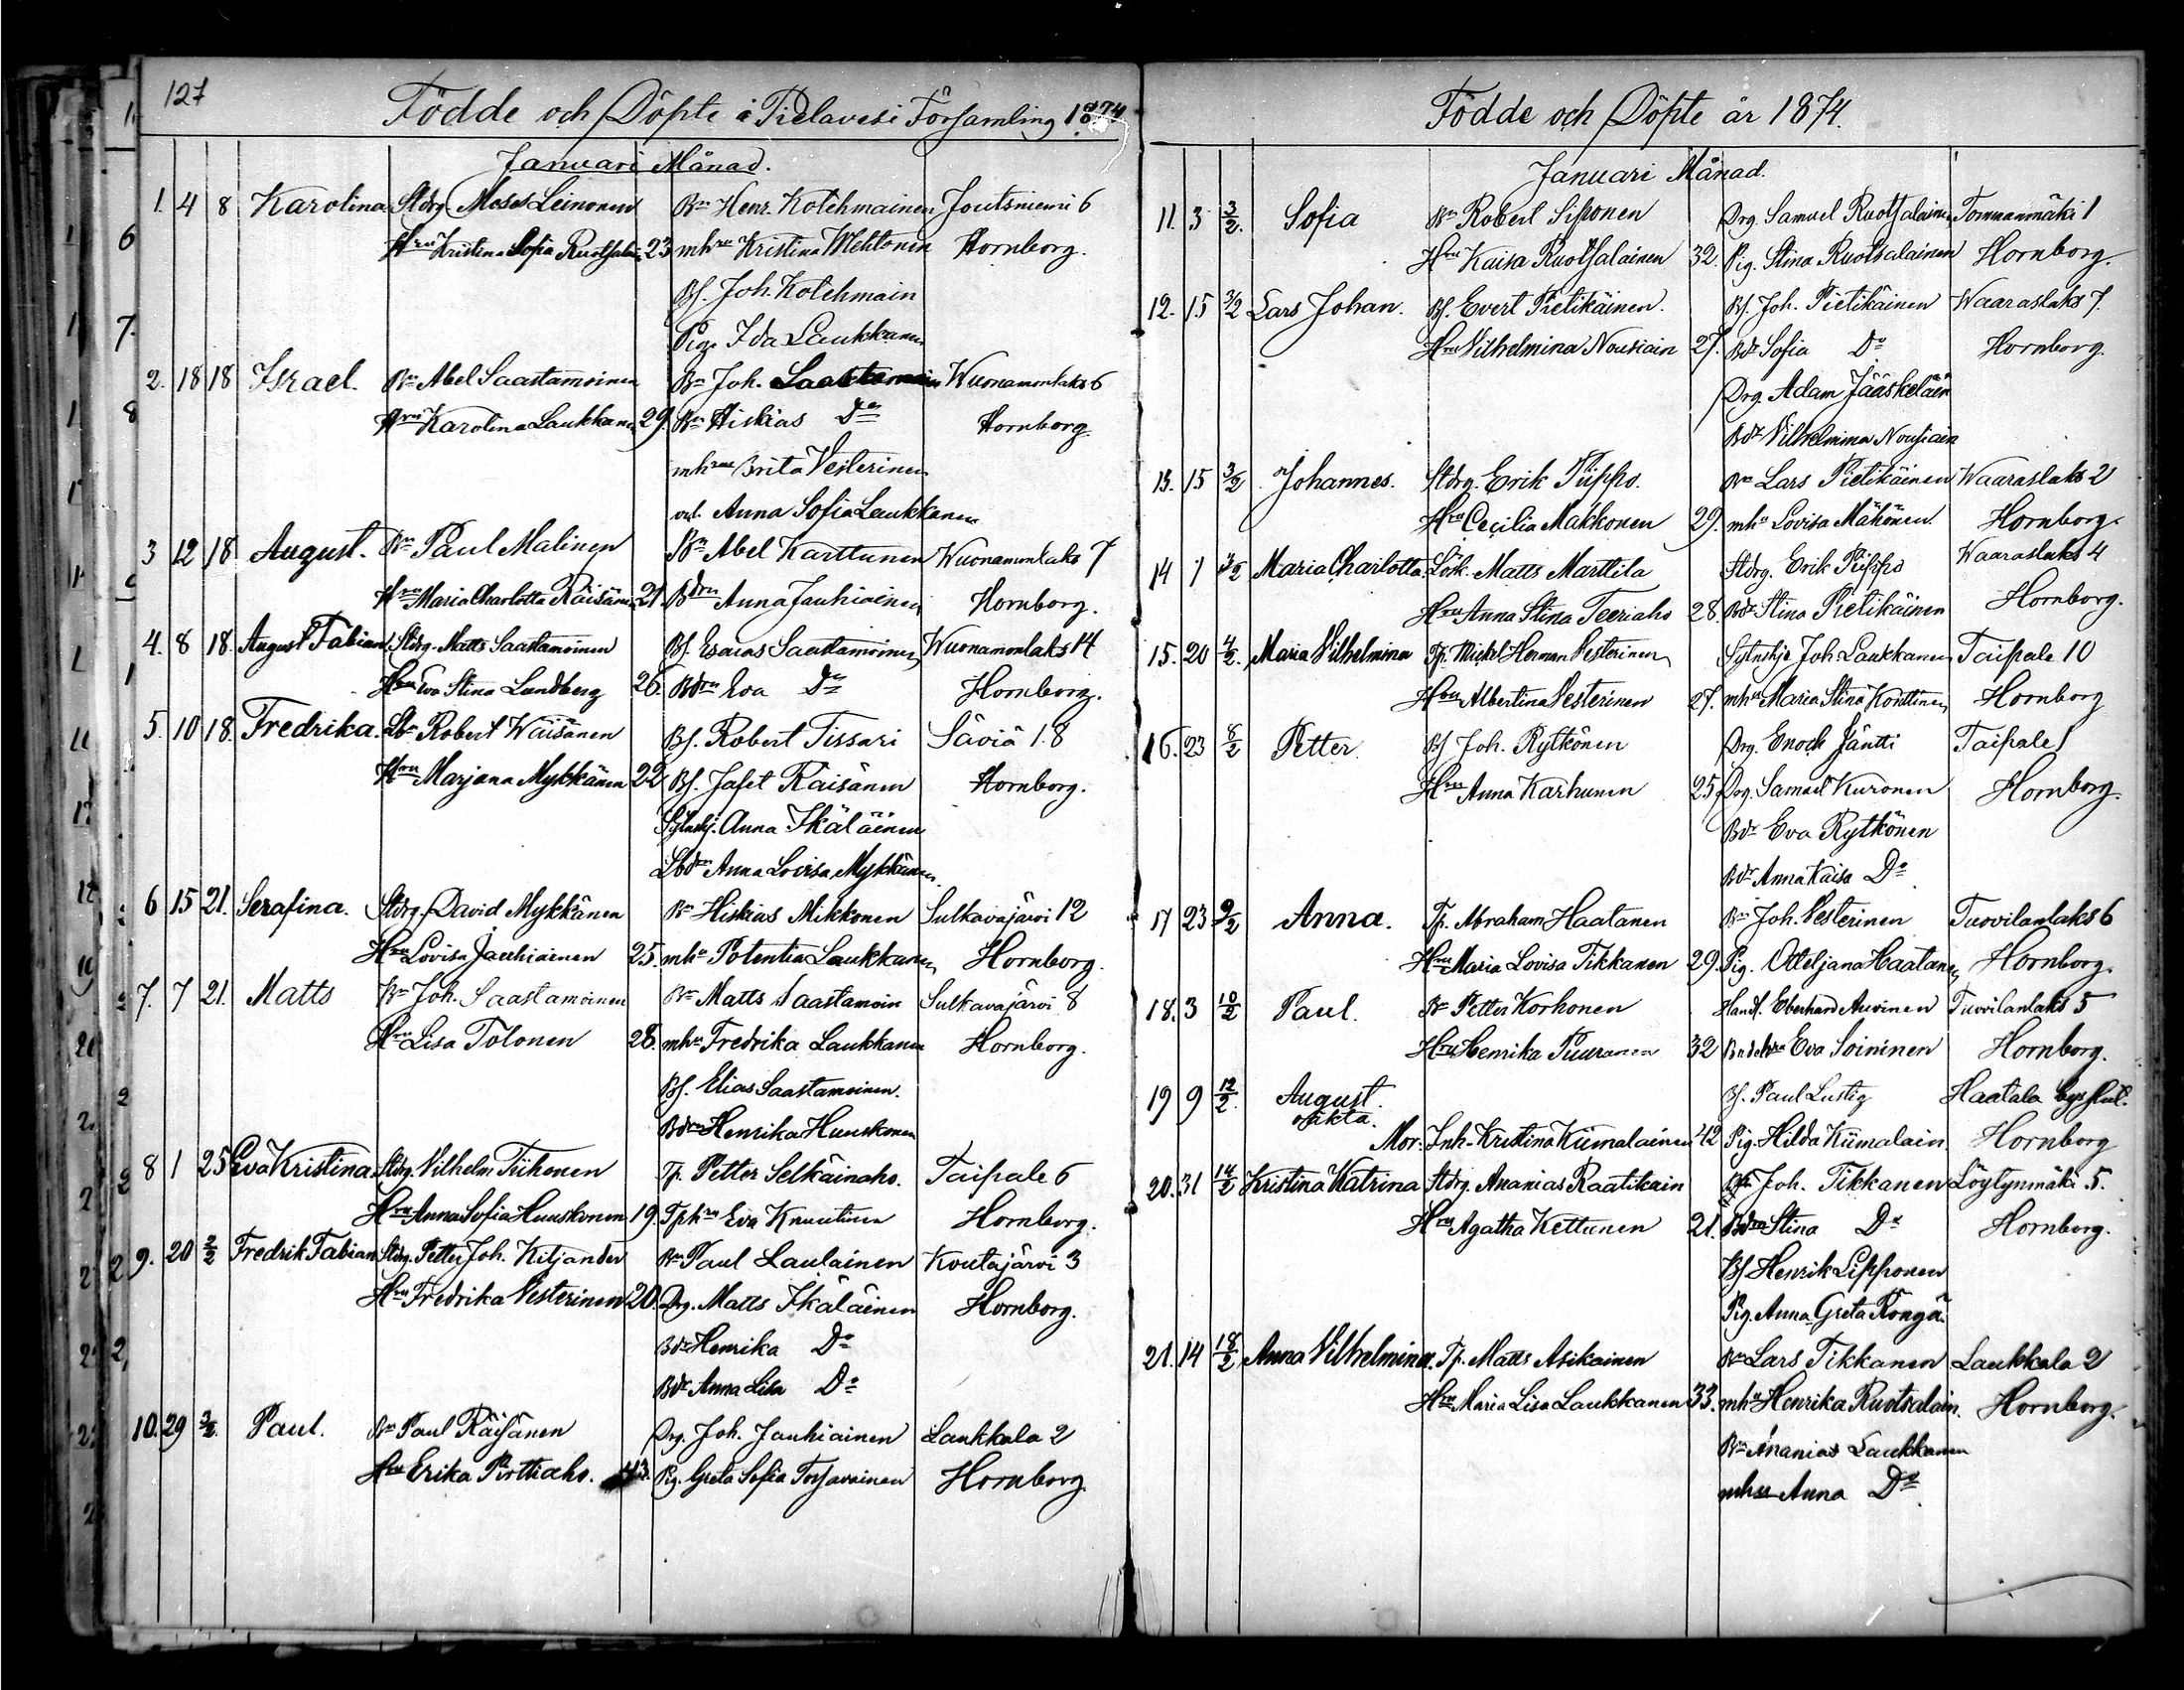 127
Födde och Döpte i Pielavesi Församling 1874
Januari Månad.
1. 4 8 Karolina Stdrg. Moses Leinonen Bn Henr. Kolehmainen Joutsniemi 6
Hru Kristina Sofia Ruotsalai. 23 mhru Kristina Mehtonen Hornborg.
Bs. Joh. Kolehmain
Pig. Ida Laukkanen
2. 18 18 Israel. Bn Abel Saastamoinen Bn Joh. Saastamoin Wuonamonlaks 6
Hru Karolina Laukkanen 29. Bn Hiskias Do Hornborg.
mhru Brita Vesterinen
Anna Sofia Laukkanen
3 12 18 August. Bn Paul Malinen Bn Abel Karttunen Wuonamonlaks 7
Hru Maria Charlotta Räisänen 21. Bdru Anna Jauhiainen Hornborg.
4. 8 18. August Fabian Stdrg. Matts Saastamoinen Bs. Esaias Saastamoinen Wuonamonlaks 14
Hru Eva Stina Lundberg 26. Bdru Eva Do Hornborg.
5. 10 18. Fredrika. Lbo Robert Wäisänen Bs. Robert Tissari Säviä 18
Hru Marjana Mykkänen 22 Bs. Jafet Räisänen Hornborg.
Sytnskj. Anna Ikäläinen
Lbdru Anna Lovisa Mykkänen.
6 15 21. Serafina. Stdrg. David Mykkänen Bn Hiskias Mikkonen Sulkavajärvi 12
Hru Lovisa Jauhiainen 25. mhu Potentia Laukkanen Hornborg.
7. 7 21. Matts Bn Joh. Saastamoinen Bn Matts Saastamoin Sulkavajärvi 8
Hru Lisa Tolonen 28. mhu Fredrika Laukkanen Hornborg.
Bs. Elias Saastamoinen.
Bdru Henrika Huuskonen
8 1 25 Eva Kristina. Stdrg. Vilhelm Tiihonen Tp. Petter Selkäinaho. Taipale 6
Hru Anna Sofia Huuskonen 19. Tphru Eva Knuutinen Hornborg.
9. 20 2/2 Fredrik Fabian Stdrg. Petter Joh. Kiljander Bn Paul Laulainen Koutajärvi 3
Hru Fredrika Vesterinen 20. Drg. Matts Ikäläinen Hornborg.
Bdr Henrika Do
Bdr Anna Lisa Do
10. 29 3/2. Paul. Bn Paul Räisänen Drg. Joh. Jauhiainen Laukkala 2
Hru Erika Pirttiaho. 43. Pig. Greta Sofia Torsavainen Hornborg.
Födde och Döpte år 1874.
Januari Månad.
11. 3 3/2. Sofia Bn Robert Sipponen Drg. Samuel Ruotsalainen Tommanmäki 1
Hru Kaisa Ruotsalainen 32. Pig. Stina Ruotsalainen Hornborg.
12. 15 3/2 Lars Johan. Bs. Evert Pietikäinen. Bs. Joh. Pietikäinen Waaraslaks 7.
Hru Vilhelmina Nousiain 27. Bdr Sofia Do Hornborg.
Drg. Adam Jääskeläin
Bdr Vilhelmina Nousiain
13. 15 3/2 Johannes. Stdrg. Erik Piippo. Bn Lars Pietikäinen Waaraslaks 2
Hru Cecilia Makkonen 29. mhu Lovisa Mähönen. Hornborg.
14 1 3/2 Maria Charlotta. Lösk. Matts Marttila Stdrg. Erik Piippo Waaraslaks 4
Hru Anna Stina Teeriaho 28. Bdr Stina Pietikäinen Hornborg.
15. 20 4/2. Maria Vilhelmina Tp. Mickel Herman Vesterinen Sytnskje Joh. Laukkanen Taipale 10
Hru Albertina Vesterinen 27. mhu Maria Stina Konttinen Hornborg
16. 23 8/2 Petter Bs Joh. Rytkönen Drg. Enoch Jäntti Taipale 1
Hru Anna Karhunen 25 Drg. Samuel Kuronen Hornborg.
Bdr Eva Rytkönen
Bdr Anna Kaisa Do
17 23 9/2 Anna. Tp. Abraham Haatanen Bn Joh. Vesterinen Tuovilanlaks 6
Hru Maria Lovisa Tikkanen 29. Pig. Otteljana Haatanen Hornborg.
18. 3 10/2 Paul. Bn Petter Korhonen Handl. Eberhard Auvinen Tuovilanlaks 5
Hru Henrika Puuranen 32 Eva Soininen Hornborg.
19 9 12/2. August. Bs. Paul Lustig Haatala
oäkta. Mor: Inh. Kristina Kiimalainen 42 Pig. Hilda Kiimalain. Hornborg
20. 31 14/2 Kristina Katrina Stdrg. Ananias Raatikain Joh. Tikkanen Löytynmäki 5.
Hru Agatha Kettunen 21. Bdru Stina Do Hornborg.
Bs Henrik Lipponen
Pig. Anna Greta Rongä.
21. 14 18/2 Anna Vilhelmina. Tp. Matts Asikainen Bn Lars Tikkanen Laukkala 2
Hru Maria Lisa Laukkanen 33. mhu Henrika Ruotsalain. Hornborg.
Bn Ananias Laukkanen
mhu Anna Do